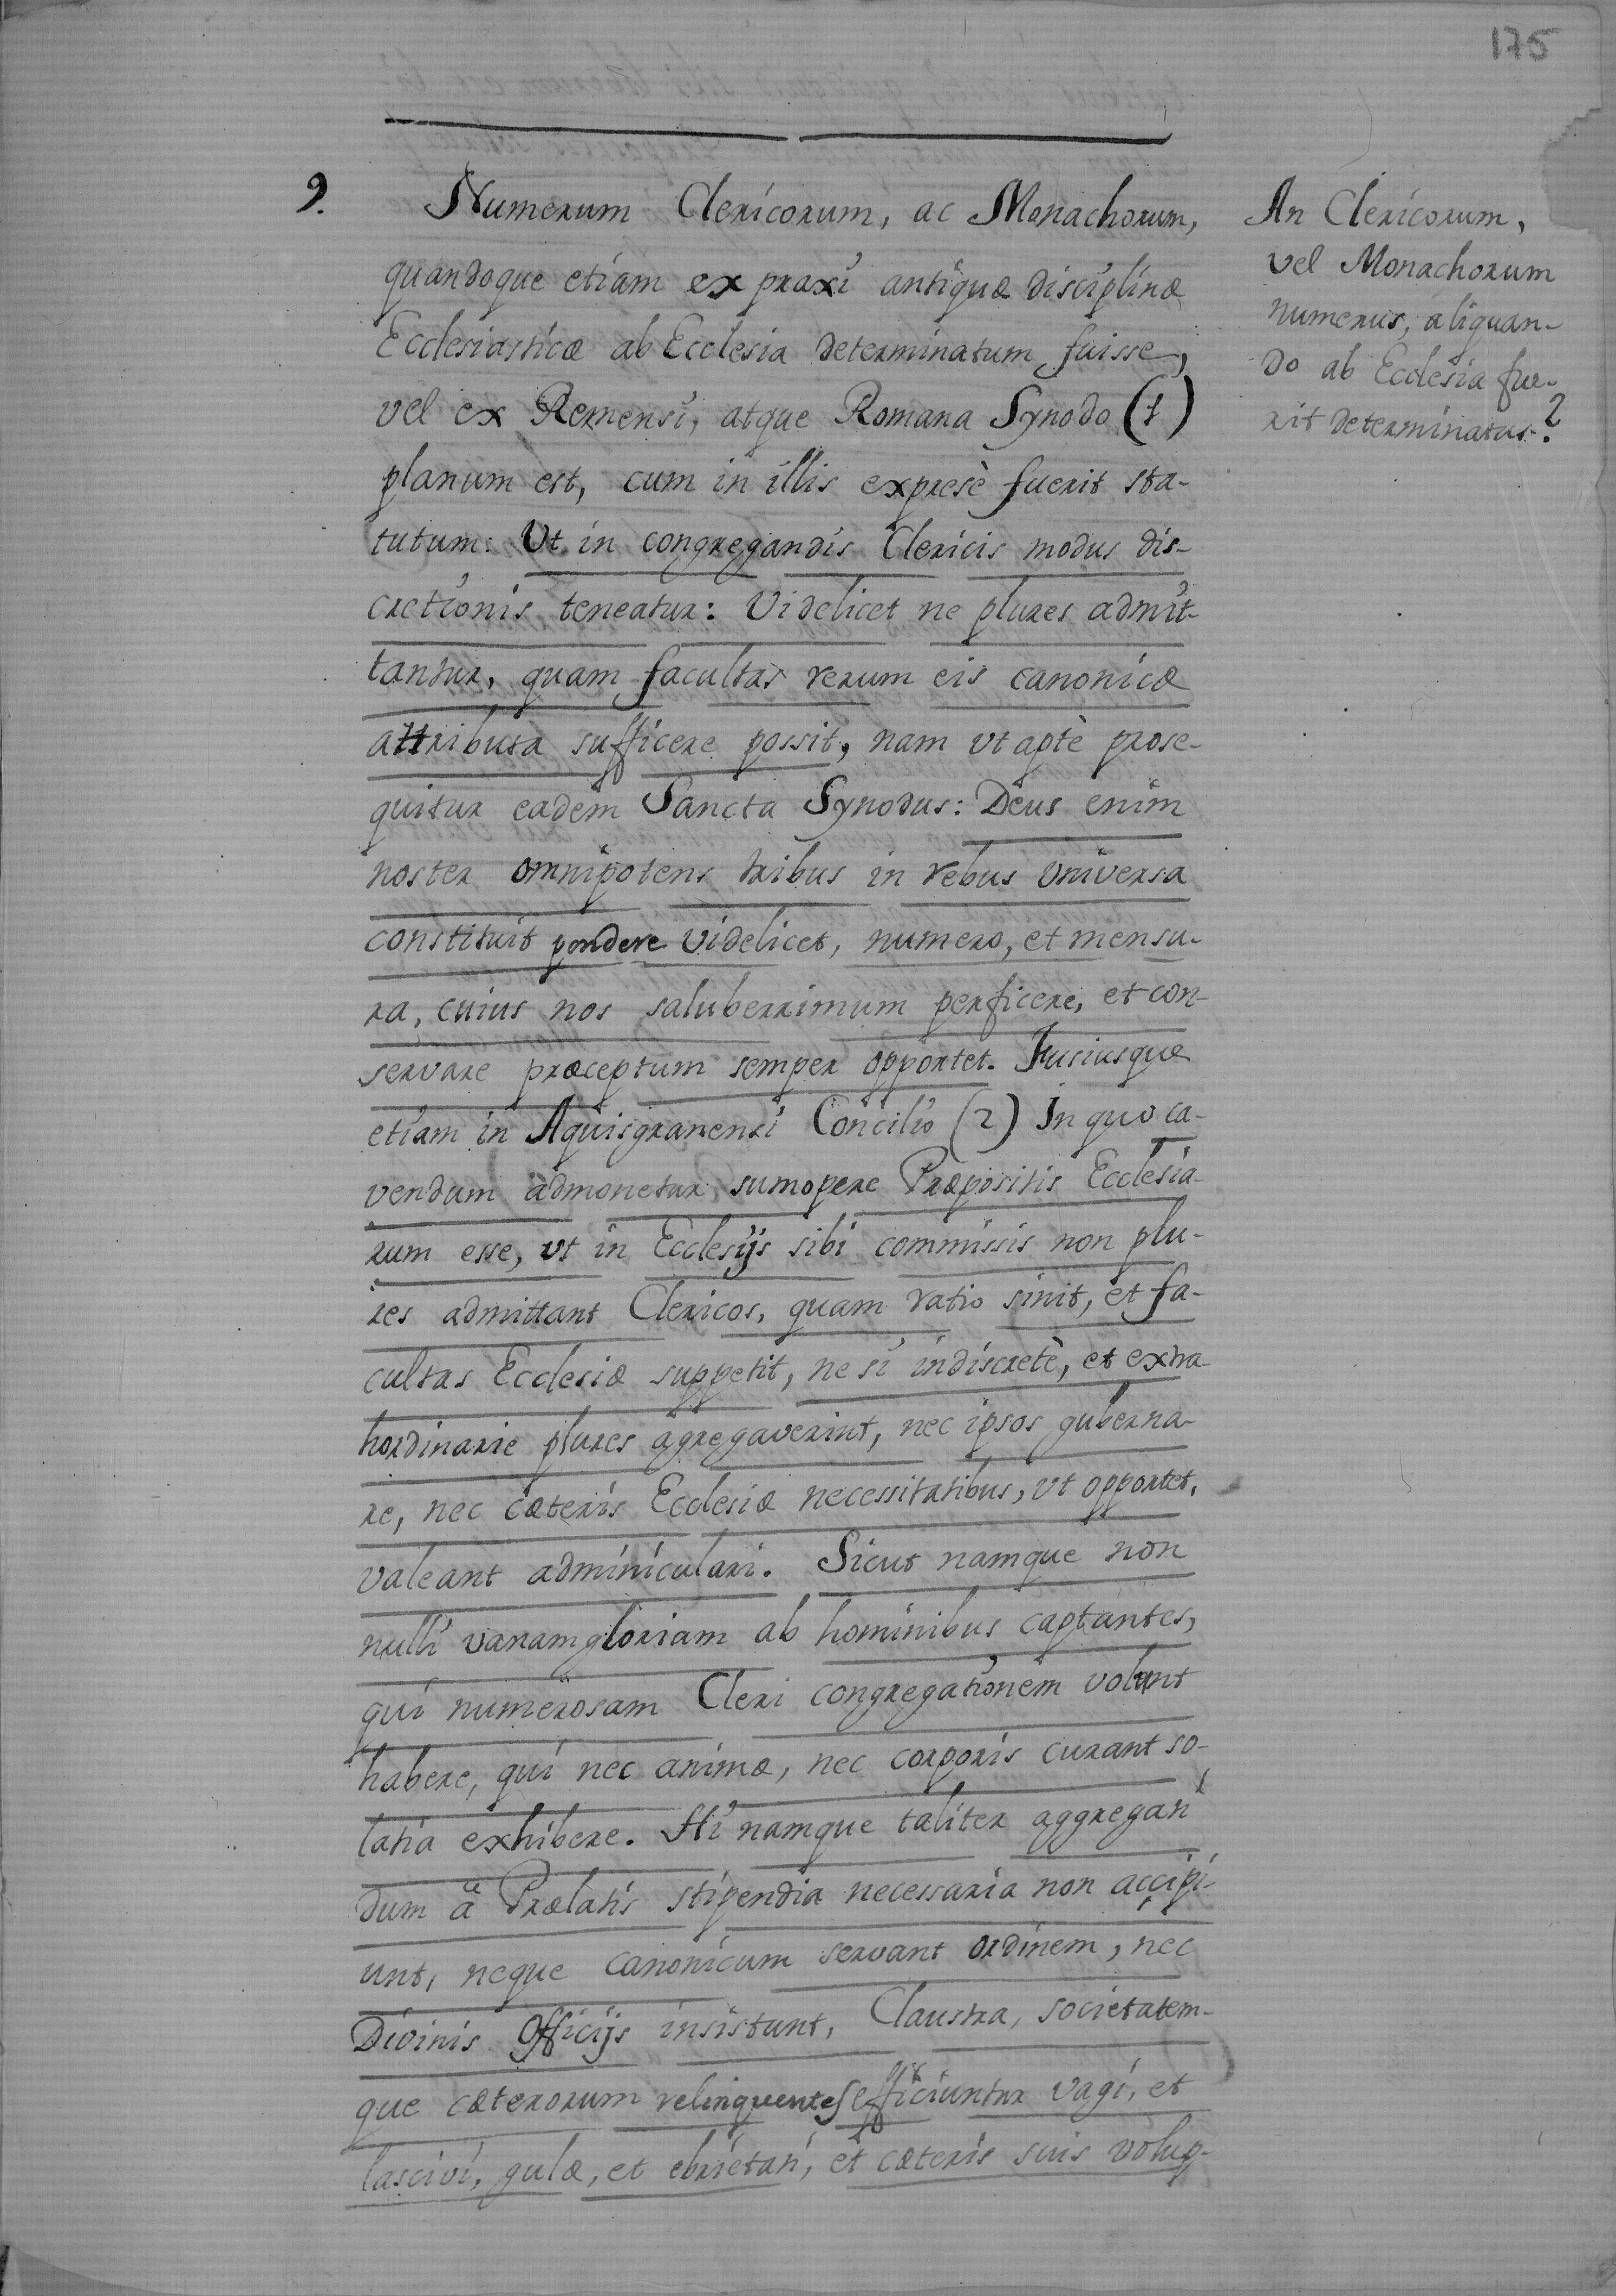 175
9. Numerum Clericorum, ac Monachorum,
quandoque etiam ex praxi antiquæ disciplinæ
Ecclesiasticæ ab Ecclesia determinatum fuisse,
vel ex Remensi, atque Romana Synodo (1)
planum est, cum in illis expresè fuerit sta-
tutum: Vt in congregandis Clericis modus dis-
cretionis teneatur: Videlicet ne plures admit-
tantur, quam facultas rerum eis canonicæ
attributa sufficere possit, nam vt aptè prose-
quitur eadem Sancta Synodus: Deus enim
noster omnipotens tribus in rebus vniversa
constituit pondere videlicet, numero, et mensu-
ra, cuius nos saluberrimum perficere, et con-
servare præceptum semper opportet. Fusiusque
etiam in Aquisgranensi Concilio (2) In quo ca-
vendum admonetur sumopere Præpositis Ecclesia-
rum esse, vt in Ecclesijs sibi commissis non plu-
res admittant Clericos, quam ratio sinit, et fa-
cultas Ecclesiæ suppetit, ne si indiscretè, et extra-
hordinarie plures agregaverint, nec ipsos guberna-
re, nec cæteris Ecclesiæ necessitatibus, vt opportet,
valeant adminiculari. Sicut namque non
nulli vanamgloriam ab hominibus captantes,
qui numerosam Cleri congregationem volunt
habere, qui nec animæ, nec corporis curant so-
latia exhibere. Hi namque taliter aggregan
dum à Prælatis stipendia necessaria non accipi-
unt, neque canonicum servant ordinem, nec
Divinis Officijs insistunt, Claustra, societatem-
que cæterorum relinquentes efficiuntur vagi, et
lascivi, gulæ, et ebrietati, et cæteris suis volup-
An Clericorum,
vel Monachorum
numerus, aliquan-
do ab Ecclesia fue-
rit determinatus?